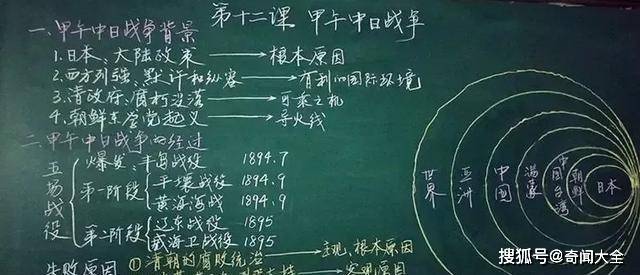 第十二课 甲午中日战争
一、甲午中日战争背景
1.日本、大陆政策 → 根本原因
2.西方列强、默许和纵容 → 有利的国际环境
3.清政府、腐朽没落 → 可乘之机
4.朝鲜东学党起义 → 导火线
二、甲午中日战争的经过
五场战役
爆发、丰岛战役 1894.7
第一阶段
平壤战役 1894.9
黄海海战 1894.9
第二阶段
辽东战役 1895
威海卫战役 1895
失败原因
①清朝的腐败统治 → 主观、根本原因
客观原因
世界
亚洲
中国
满蒙
中国台湾
朝鲜
日本
搜狐号@奇闻大全